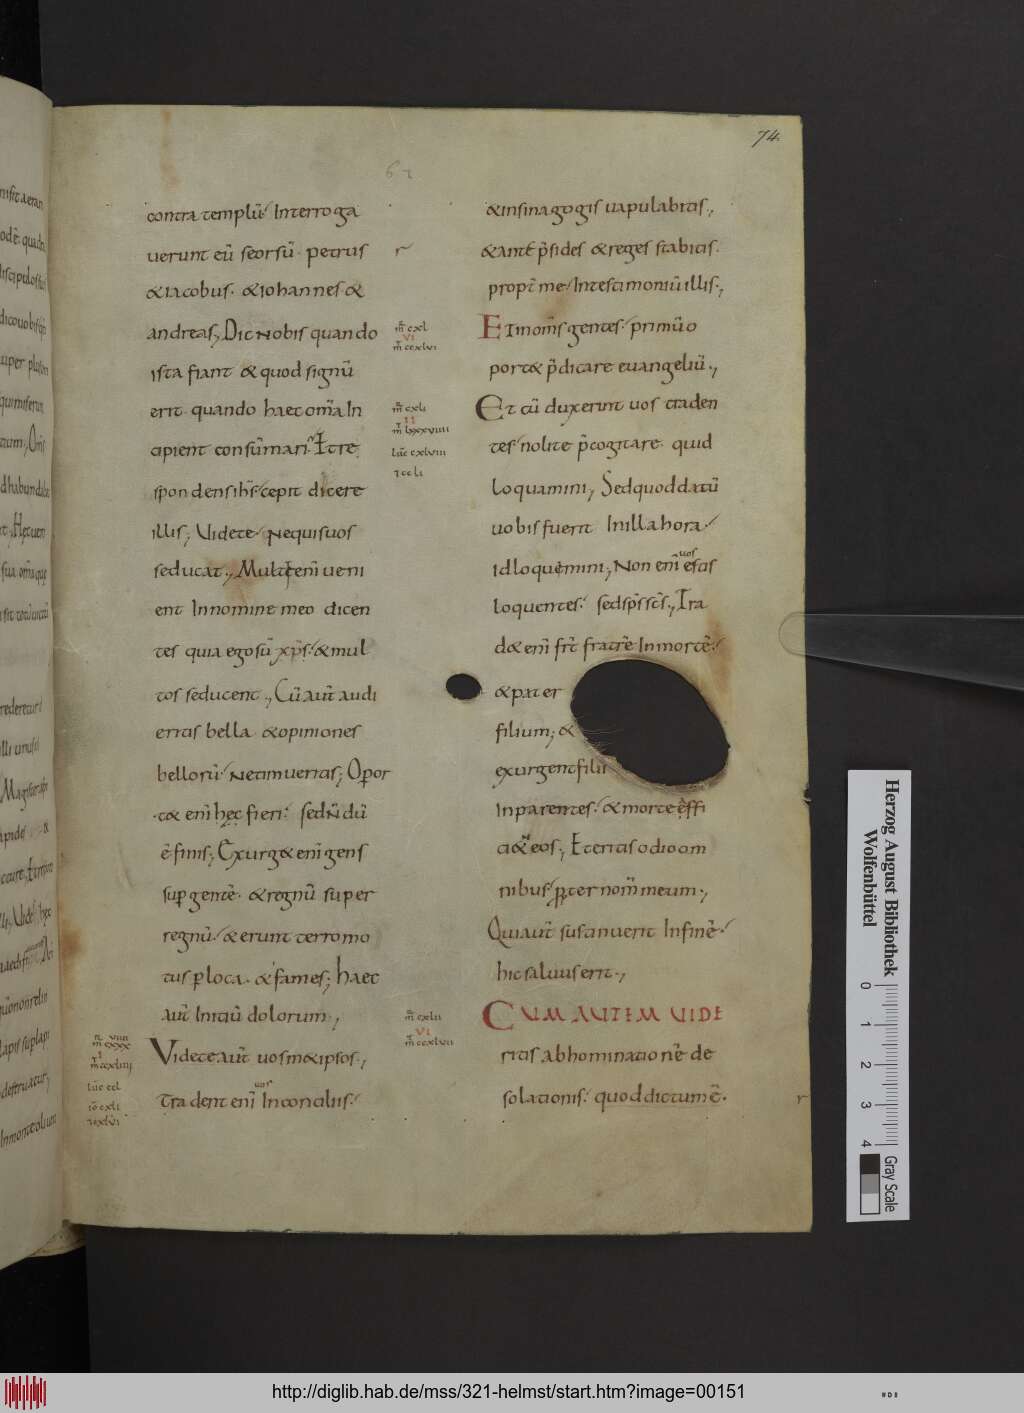 74
62
contra templū. Interroga
uerunt eū seorsū. petrus
&iacobus. &iohannes &
andreas; Dic nobis quando
ista fiant & quod signū
erit. quando haec om̄a In
cipient consūmari. Et re
spondens ih̄s cepit dicere
illis; Uidete. Nequis uos
seducat; Multi enī ueni
ent In nomine meo dicen
tes quia ego sū xp̄s. & mul
tos seducent; Cū aut̄ audi
eritis bella &opiniones
bellorū. Netimueritis; Opor
t& enī hęc fieri. sed N̄dū
ē finis; Exurg& enī gens
sup gentē. &regnū super
regnū. &erunt terrȩmo
tus p loca. &fames; haec
aut̄ Initiū dolorum;
Videte aut̄ uosm&ipsos;
uos
Tradent enī In conciliis.
r
m̄ cxl
VI
m̄ ccxlvi
m̄ cxli
II
m̄ lxxxviiii
luc̄ cxlviii
m̄ cxlii
VI
m̄ ccxlvii
luc̄ ccl
io̅ cxli
&insinagogis uapulabitis;
&ante p̄sides &reges stabitis.
propt̄ me. Intestimoniū illis;
ET Inom̄s gentes. primū o
port& p̄dicare euangeliū;
Et cū duxerint uos traden
tes nolite p̄cogitare. quid
loquamini; Sed quod datū
uobis fuerit Inilla hora.
uos
id loquemini; Non enī estis
loquentes. sed sp̄s sc̄s; Tra
d& enī frt̄ fratrē Inmortē.
&pater
filium; &
exurgent filii
Inparentes. &morte effi
ci&Neos; Et eritis odio om
nibus. pter nom̄ meum;
Qui aut̄ sustinuerit Infinē.
hic saluus erit;
CUM AUTEM UIDE
ritis abhominationē de
solationis. quod dictum ē.
r
Herzog August Bibliothek
Wolfenbüttel
0 1 2 3 4
Gray Scale
http://diglib.hab.de/mss/321-helmst/start.htm?image=00151